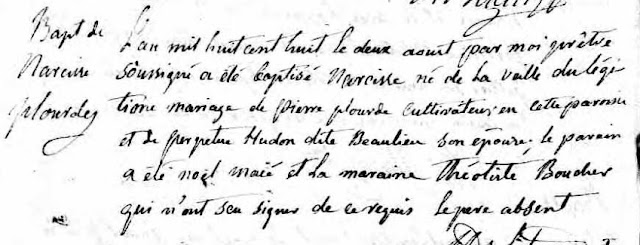 Bapt de
Narcisse
plourdes
L'an mil huit cent huit le deux aout par moi prêtre
Soussigné a été baptisé Narcisse né de la veille du légi
time mariage de pierre plourde cultivateur en cette paroisse
et de perpetue Hudon dite Beaulieu son épouse; le parain
a été noel maié et la maraine théotiste Boucher
qui n'ont seu signer de ce requis le pere absent